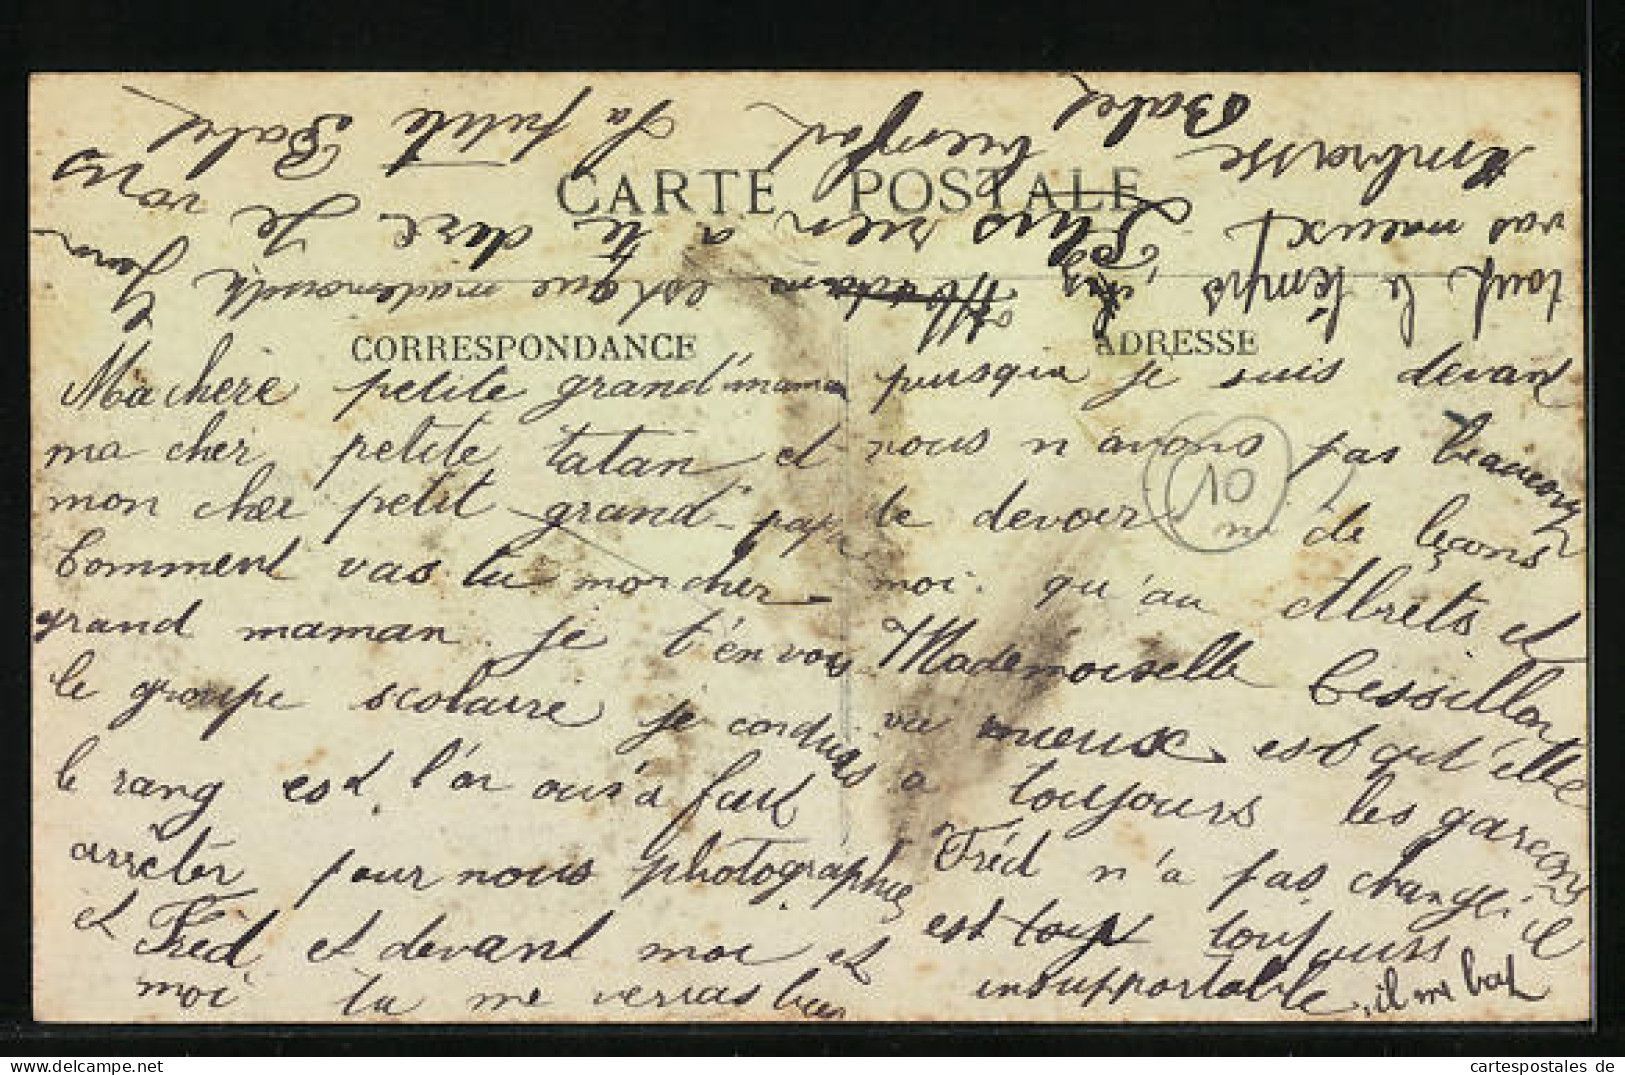 CARTE POSTALE
CORRESPONDANCE
ADRESSE
Ma chère petite grand'maman
ma cher petite tatan et
mon cher petit grand-papa
Comment vas tu mon cher
grand maman. je t'envoi
le groupe scolaire je conduis
le rang est l'on a fait
arrêter pour nous photographier
et Fréd et devant moi et
moi tu me verras bien
puisque je suis devant
nous n'avons pas beaucoup
de devoir ni de leçons
moi qu'au Abrets et
Mademoiselle Cessillon
va mieux est
a toujours les garçons
Fréd n'a pas changé il
est toujours
insupportable il me bat
tout le temps est que mademoiselle
vas mieux Plus rien a te dire Je vous
embrasse bien fort Ta petite Babel
Babel
10
cartespostales de